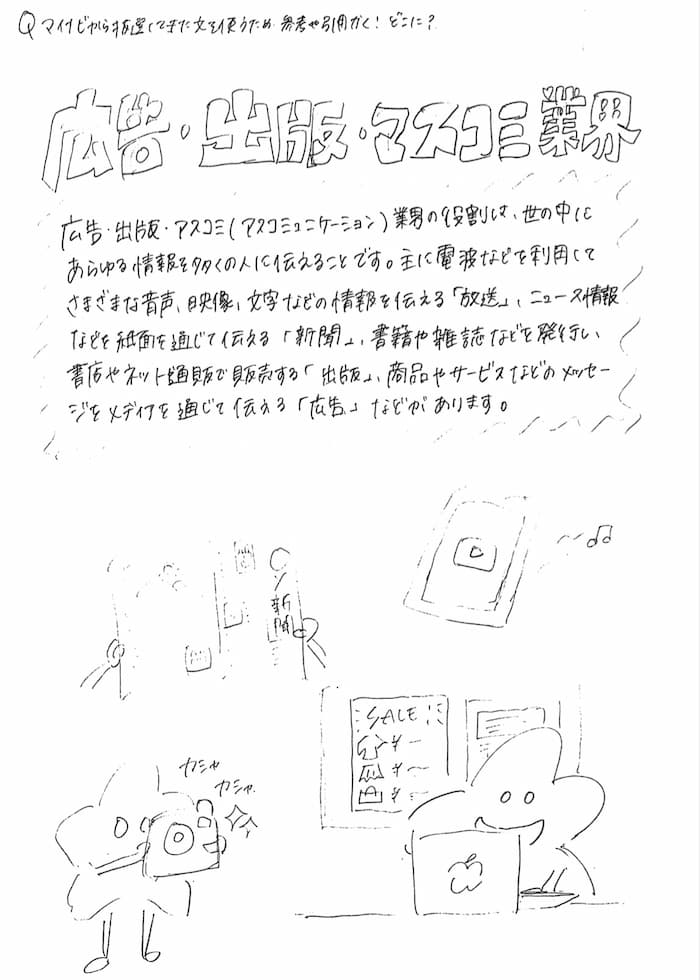 Q マイナビから抜選してきた文を使うため、参考や引用かく！どこに？
広告・出版・マスコミ業界
広告・出版・マスコミ(マスコミュニケーション)業界の役割は、世の中に
あらゆる情報を多くの人に伝えることです。主に電波などを利用して
さまざまな音声、映像、文字などの情報を伝える「放送」、ニュース情報
などを紙面を通じて伝える「新聞」、書籍や雑誌などを発行し、
書店やネット通販で販売する「出版」、商品やサービスなどのメッセー
ジをメディアを通じて伝える「広告」などがあります。
新聞
SALE
カシャ
カシャ